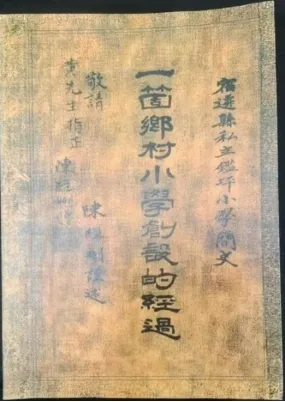 宿遷縣私立鑑小學簡文
一箇鄉村小學創設的經過
陳謹述
敬請
先生指正
陳